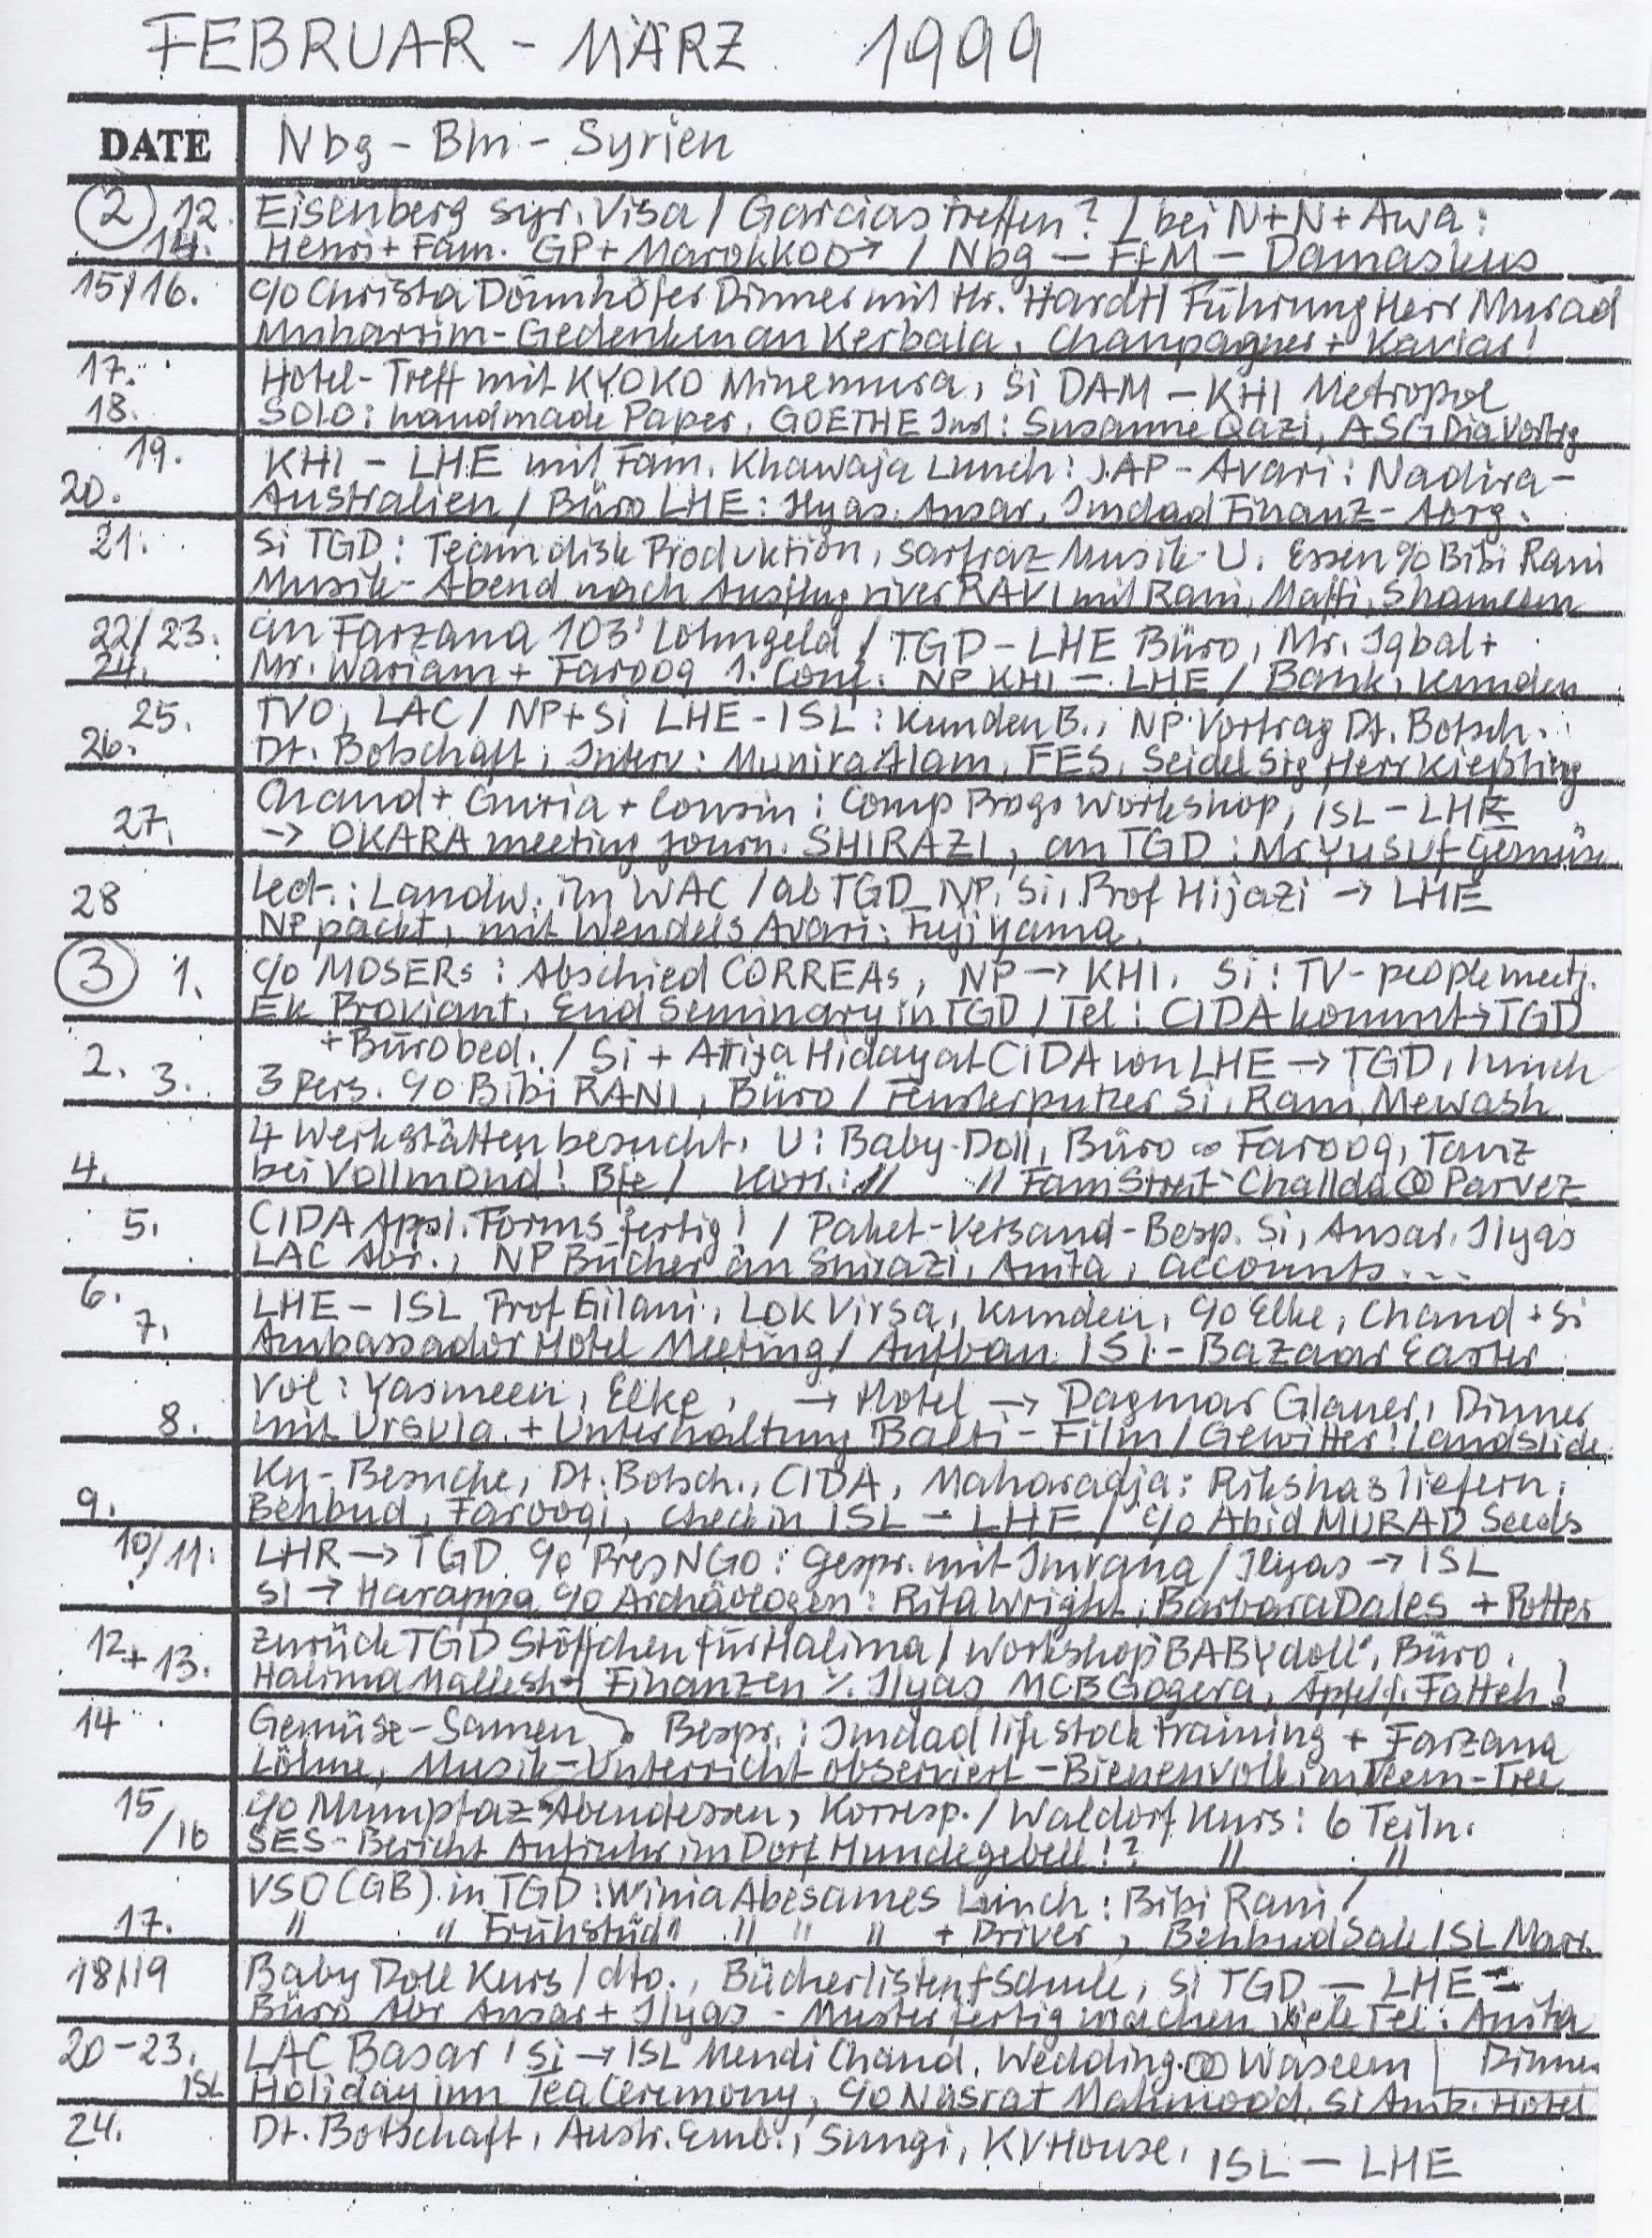 FEBRUAR - MÄRZ 1999
DATE Nbg - Bln - Syrien
2 12. Eisenberg syr. Visa / Garcias treffen? / bei N+N+Awa:
14. Henri + Fam. GP + Marokko → / Nbg — FfM — Damaskus
15/16. c/o Christa Dönnhöfer Dinner mit Hr. Hardt / Führung Herr Murad
Muharrim-Gedenken an Kerbala, Champagner + Kaviar!
17. Hotel-Treff mit KYOKO Minemura, Si DAM — KHI Metropol
18. SOLO: handmade Paper, GOETHE Inst: Susanne Qazi, ASG Dia Vortrg
19. KHI — LHE mit Fam. Khawaja Lunch: JAP-Avari: Nadira-
20. Australien / Büro LHE: Ilyas, Ansar, Imdad Finanz-Abrg.
21. Si TGD: Team disk Produktion, Sarfraz Musik-U. Essen c/o Bibi Rani
Musik-Abend nach Ausflug river RAVI mit Rani, Maffi, Shameem
22/23. an Farzana 103' Lohngeld / TGD-LHE Büro, Mr. Iqbal +
24. Mr. Wariam + Farooq 1. Conf. NP KHI — LHE / Bank, Kunden
25. TVO, LAC / NP+Si LHE-ISL: Kunden B., NP Vortrag Dt. Botsch.
26. Dt. Botschaft, Interv: Munira Alam, FES, Seidel Stg Herr Kießling
Chand + Guria + Cousin: Comp Progr Workshop, ISL-LHE
27. → OKARA meeting Journ. SHIRAZI, an TGD: Mr Yusuf Gemüse
28 Lect.: Landw. im WAC / ab TGD NP, Si, Prof Hijazi → LHE
NP packt, mit Wendels Avari: Fujiyama
3 1. c/o MOSERs: Abschied CORREAs, NP → KHI. Si: TV-people meetg.
Ek Proviant, End Seminary in TGD / Tel: CIDA kommt → TGD
2. + Bürobed. / Si + Attiya Hidayat CIDA von LHE → TGD, lunch
3. 3 Pers. c/o Bibi RANI, Büro / Fensterputzer Si, Rani, Mewash
4 Werkstätten besucht, U: Baby-Doll, Büro ∞ Farooq, Tanz
4. bei Vollmond! Bfe / Korr.: " " Fam Streit Challda Parvez
5. CIDA Appl. Forms fertig! / Paket-Versand-Besp. Si, Ansar, Ilyas
LAC Abr., NP Bücher an Shirazi, Anita, accounts...
6. LHE — ISL Prof Gilani, Lok Virsa, Kunden, c/o Elke, Chand + Si
7. Ambassador Hotel Meeting / Aufbau ISL-Bazaar Easter
Vol: Yasmeen, Elke, → Hotel → Dagmar Glaner, Dinner
8. mit Ursula + Unterhaltung Balti-Film / Gewitter! Landslide
Kn-Besuche, Dt. Botsch., CIDA, Maharadja: Rikshas liefern,
9. Behbud, Farooqi, check in ISL — LHE / c/o Abid MURAD Seeds
10/11: LHR → TGD c/o Pres NGO: gespr. mit Imrana / Ilyas → ISL
Si → Harappa c/o Archäologen: Rita Wright, Barbara Dales + Potter
12+13. zurück TGD Stöffchen für Halima / Workshop "BABYdoll", Büro,
Halima Mallesh Finanzen %. Ilyas MCB Gogera, Fatteh!
14 Gemüse-Samen Bespr.: Imdad life stock training + Farzana
Löhne, Musik-Unterricht observiert - Bienenvolk im Neem-Tree
15 c/o Mumptaz Abendessen, Korresp. / Waldorf Kurs: 6 Teiln.
/16 SES-Bericht Aufruhr im Dorf Hundegebell!? " "
VSO (GB) in TGD: Winia Abesames Lunch: Bibi Rani /
17. " " Frühstück " " " + Driver, Behbud Sale ISL Marr.
18/19 Baby Doll Kurs / dto., Bücherlisten f Schule, Si TGD — LHE
Büro Abr Ansar + Ilyas - Muster fertig machen viele Tel: Anita
20-23. LAC Basar / Si → ISL Mendi Chand, Wedding Waseem | Dinner
ISL Holiday inn Tea Ceremony, c/o Nusrat Mahmood, Si Amb. Hotel
24. Dt. Botschaft, Austr. Emb., Sungi, KVHouse, ISL — LHE